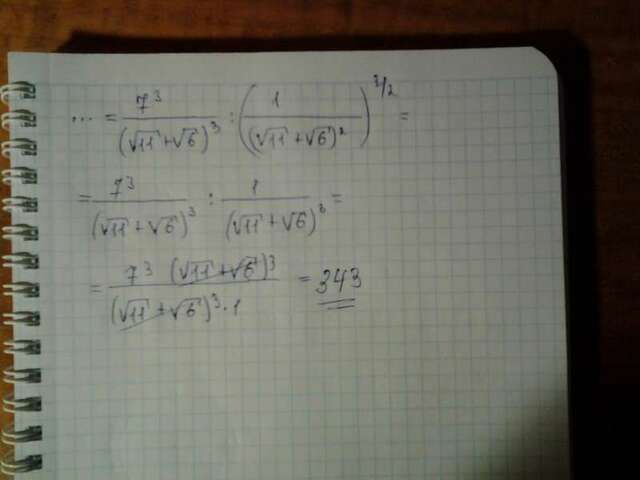 ... = 7³/(√11+√6)³ : (1/(√11+√6)²)^3/2 =
= 7³/(√11+√6)³ : 1/(√11+√6)³ =
= 7³ (√11+√6)³/(√11+√6)³·1 = 343